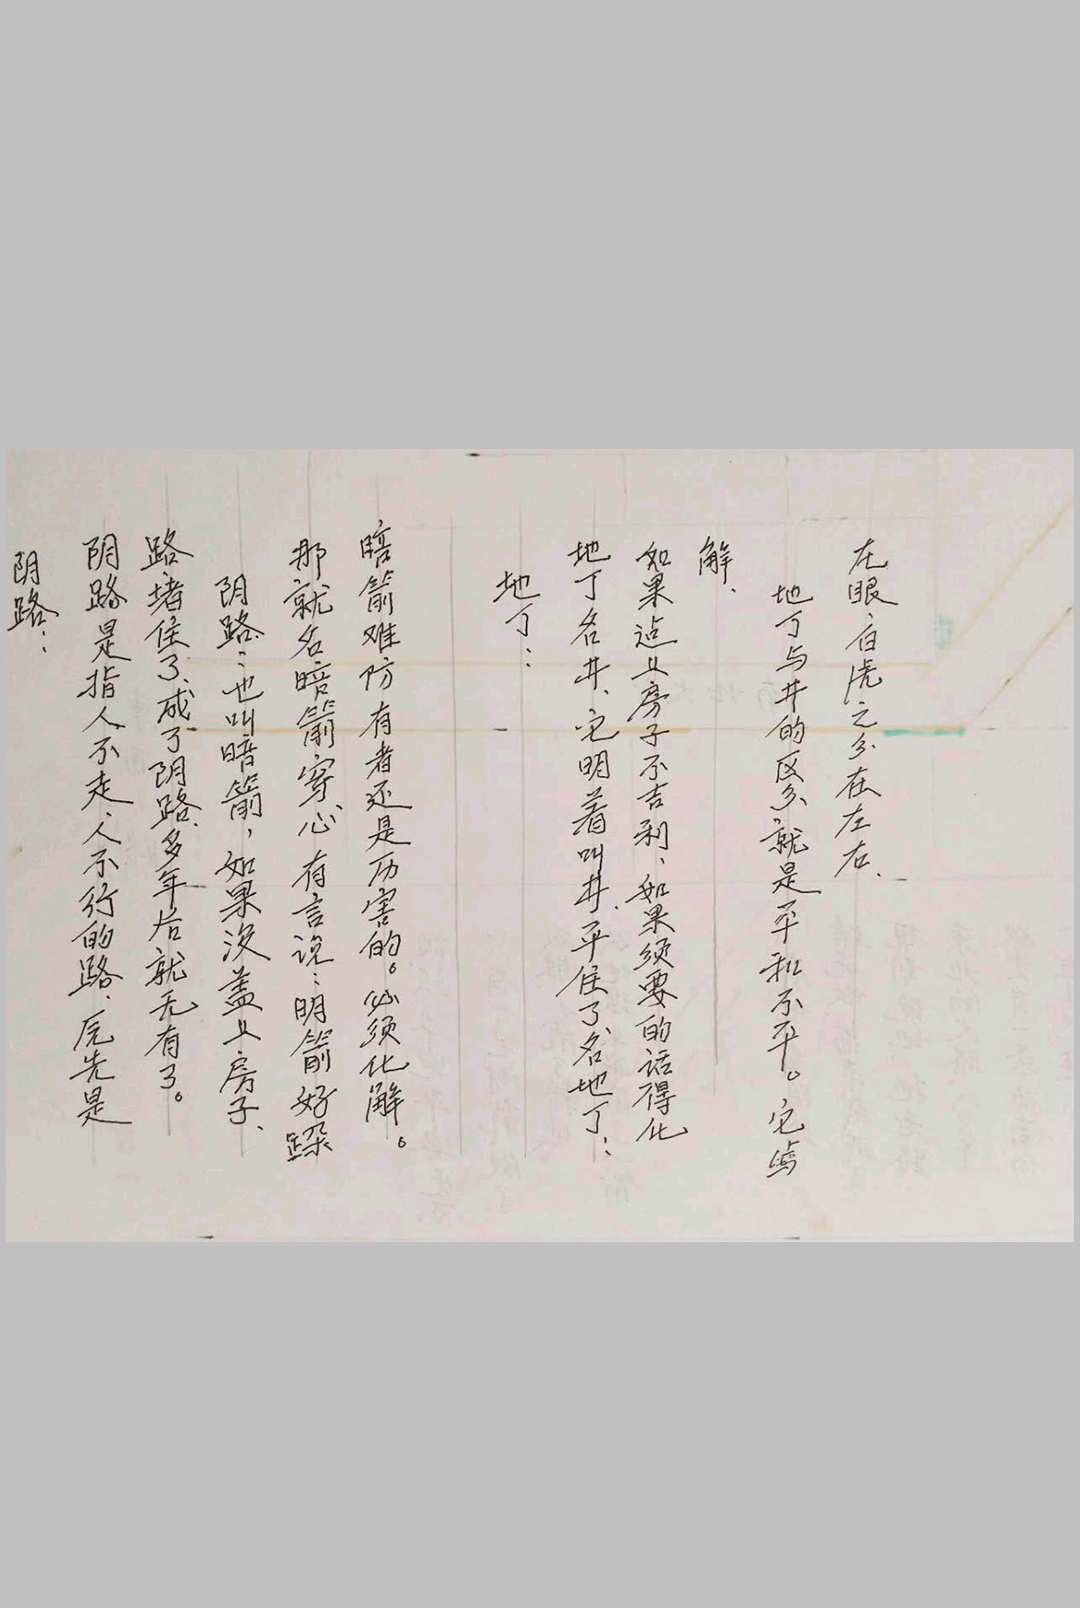 阴路：
阴路是指人不走、人不行的路、原先是
路堵住了、成了阴路、多年后就无有了。
阴路：也叫暗箭，如果没盖上房子、
那就名暗箭穿心、有言说：明箭好跺
暗箭难防有者还是历害的。必须化解。
地丁：
地丁名井、它明着叫井、平住了名地丁：
如果沾上房子不吉利、如果须要的话得化
解、
地丁与井的区分、就是平和不平。它
眼、白虎之分在左右、